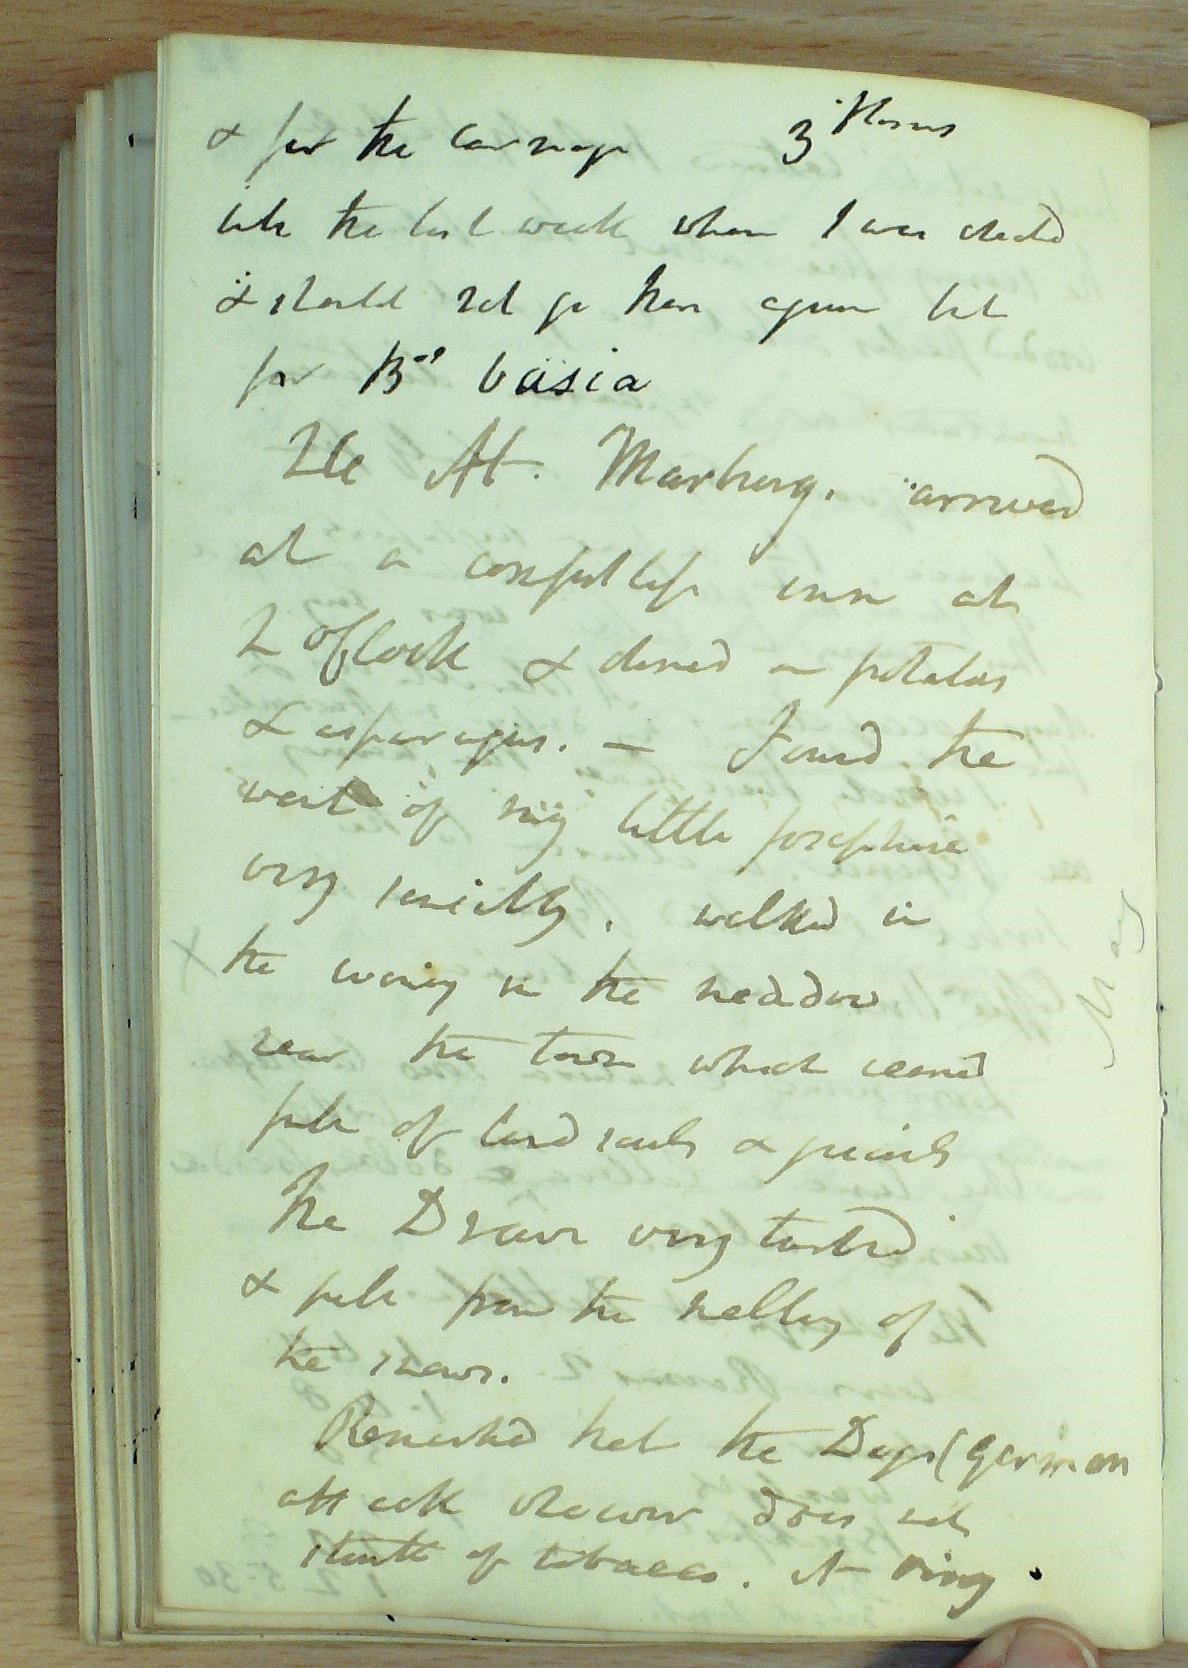 & for the carriage 3 Horses
like the last week when I was cheated
& should not go there again but
for B
The At. Marburg. arrived
at a comfortless inn at
2 O'Clock & dined on potatoes
& asparagus. — Found the
want of my little Josephine
very sensibly. walked in
the evening in the meaddow
near the town which seemed
full of land rails & quails
the Drave very turbid
& full from the melting of
the snow.
Remarked that the Dogs (german
attack whoever does not
stink of tobacco. A
May